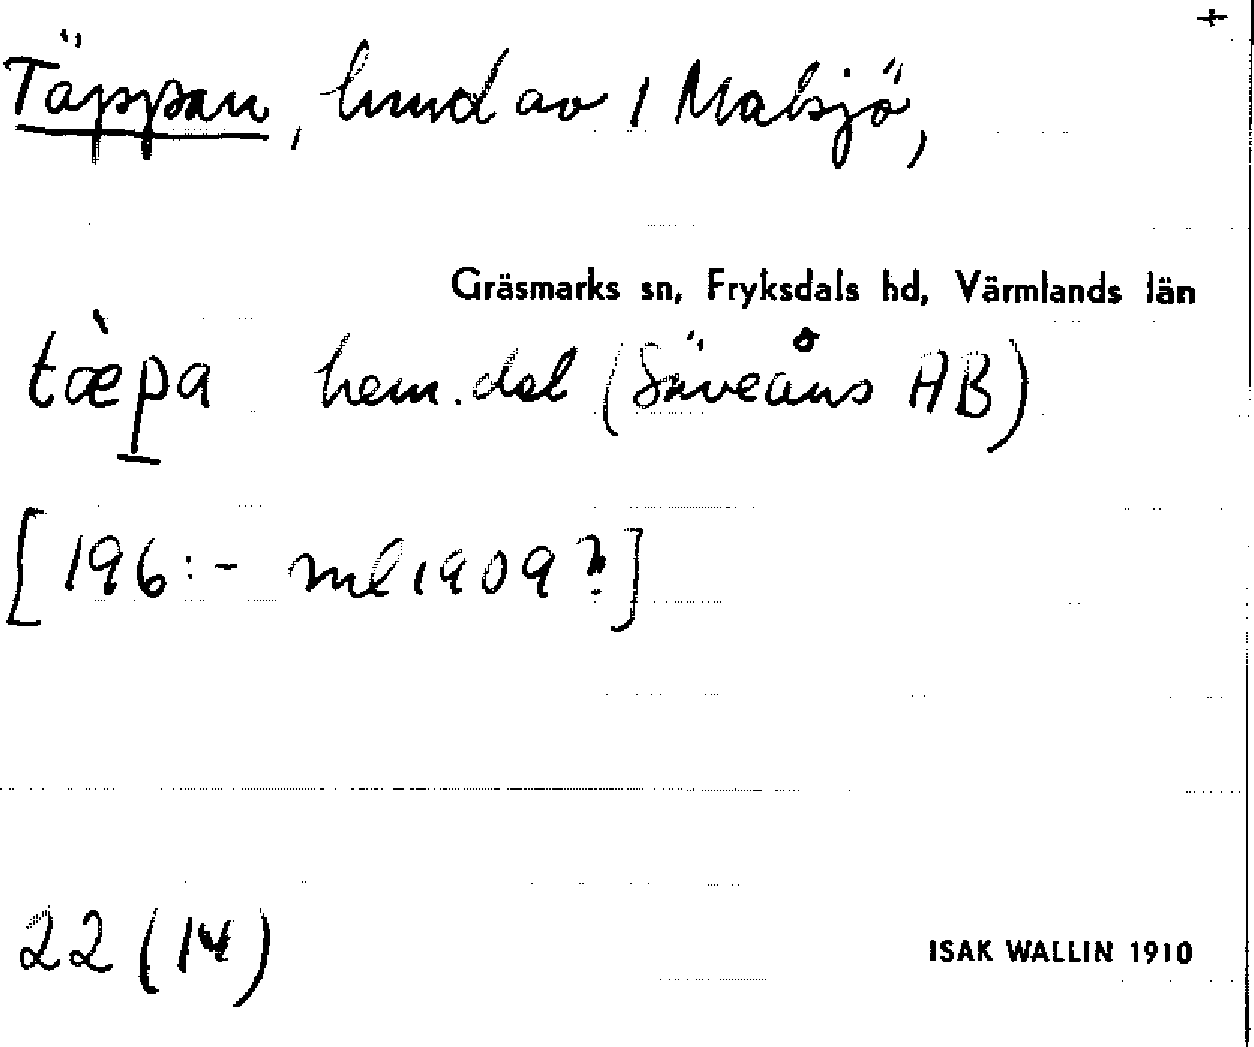 +
Täppan, hmd av 1 Malsjö,
Gräsmarks sn, Fryksdals hd, Värmlands län
tæ̀pa hem.del (Säveåns AB)
[196:- ml 1909?]
22 (14)
ISAK WALLIN 1910